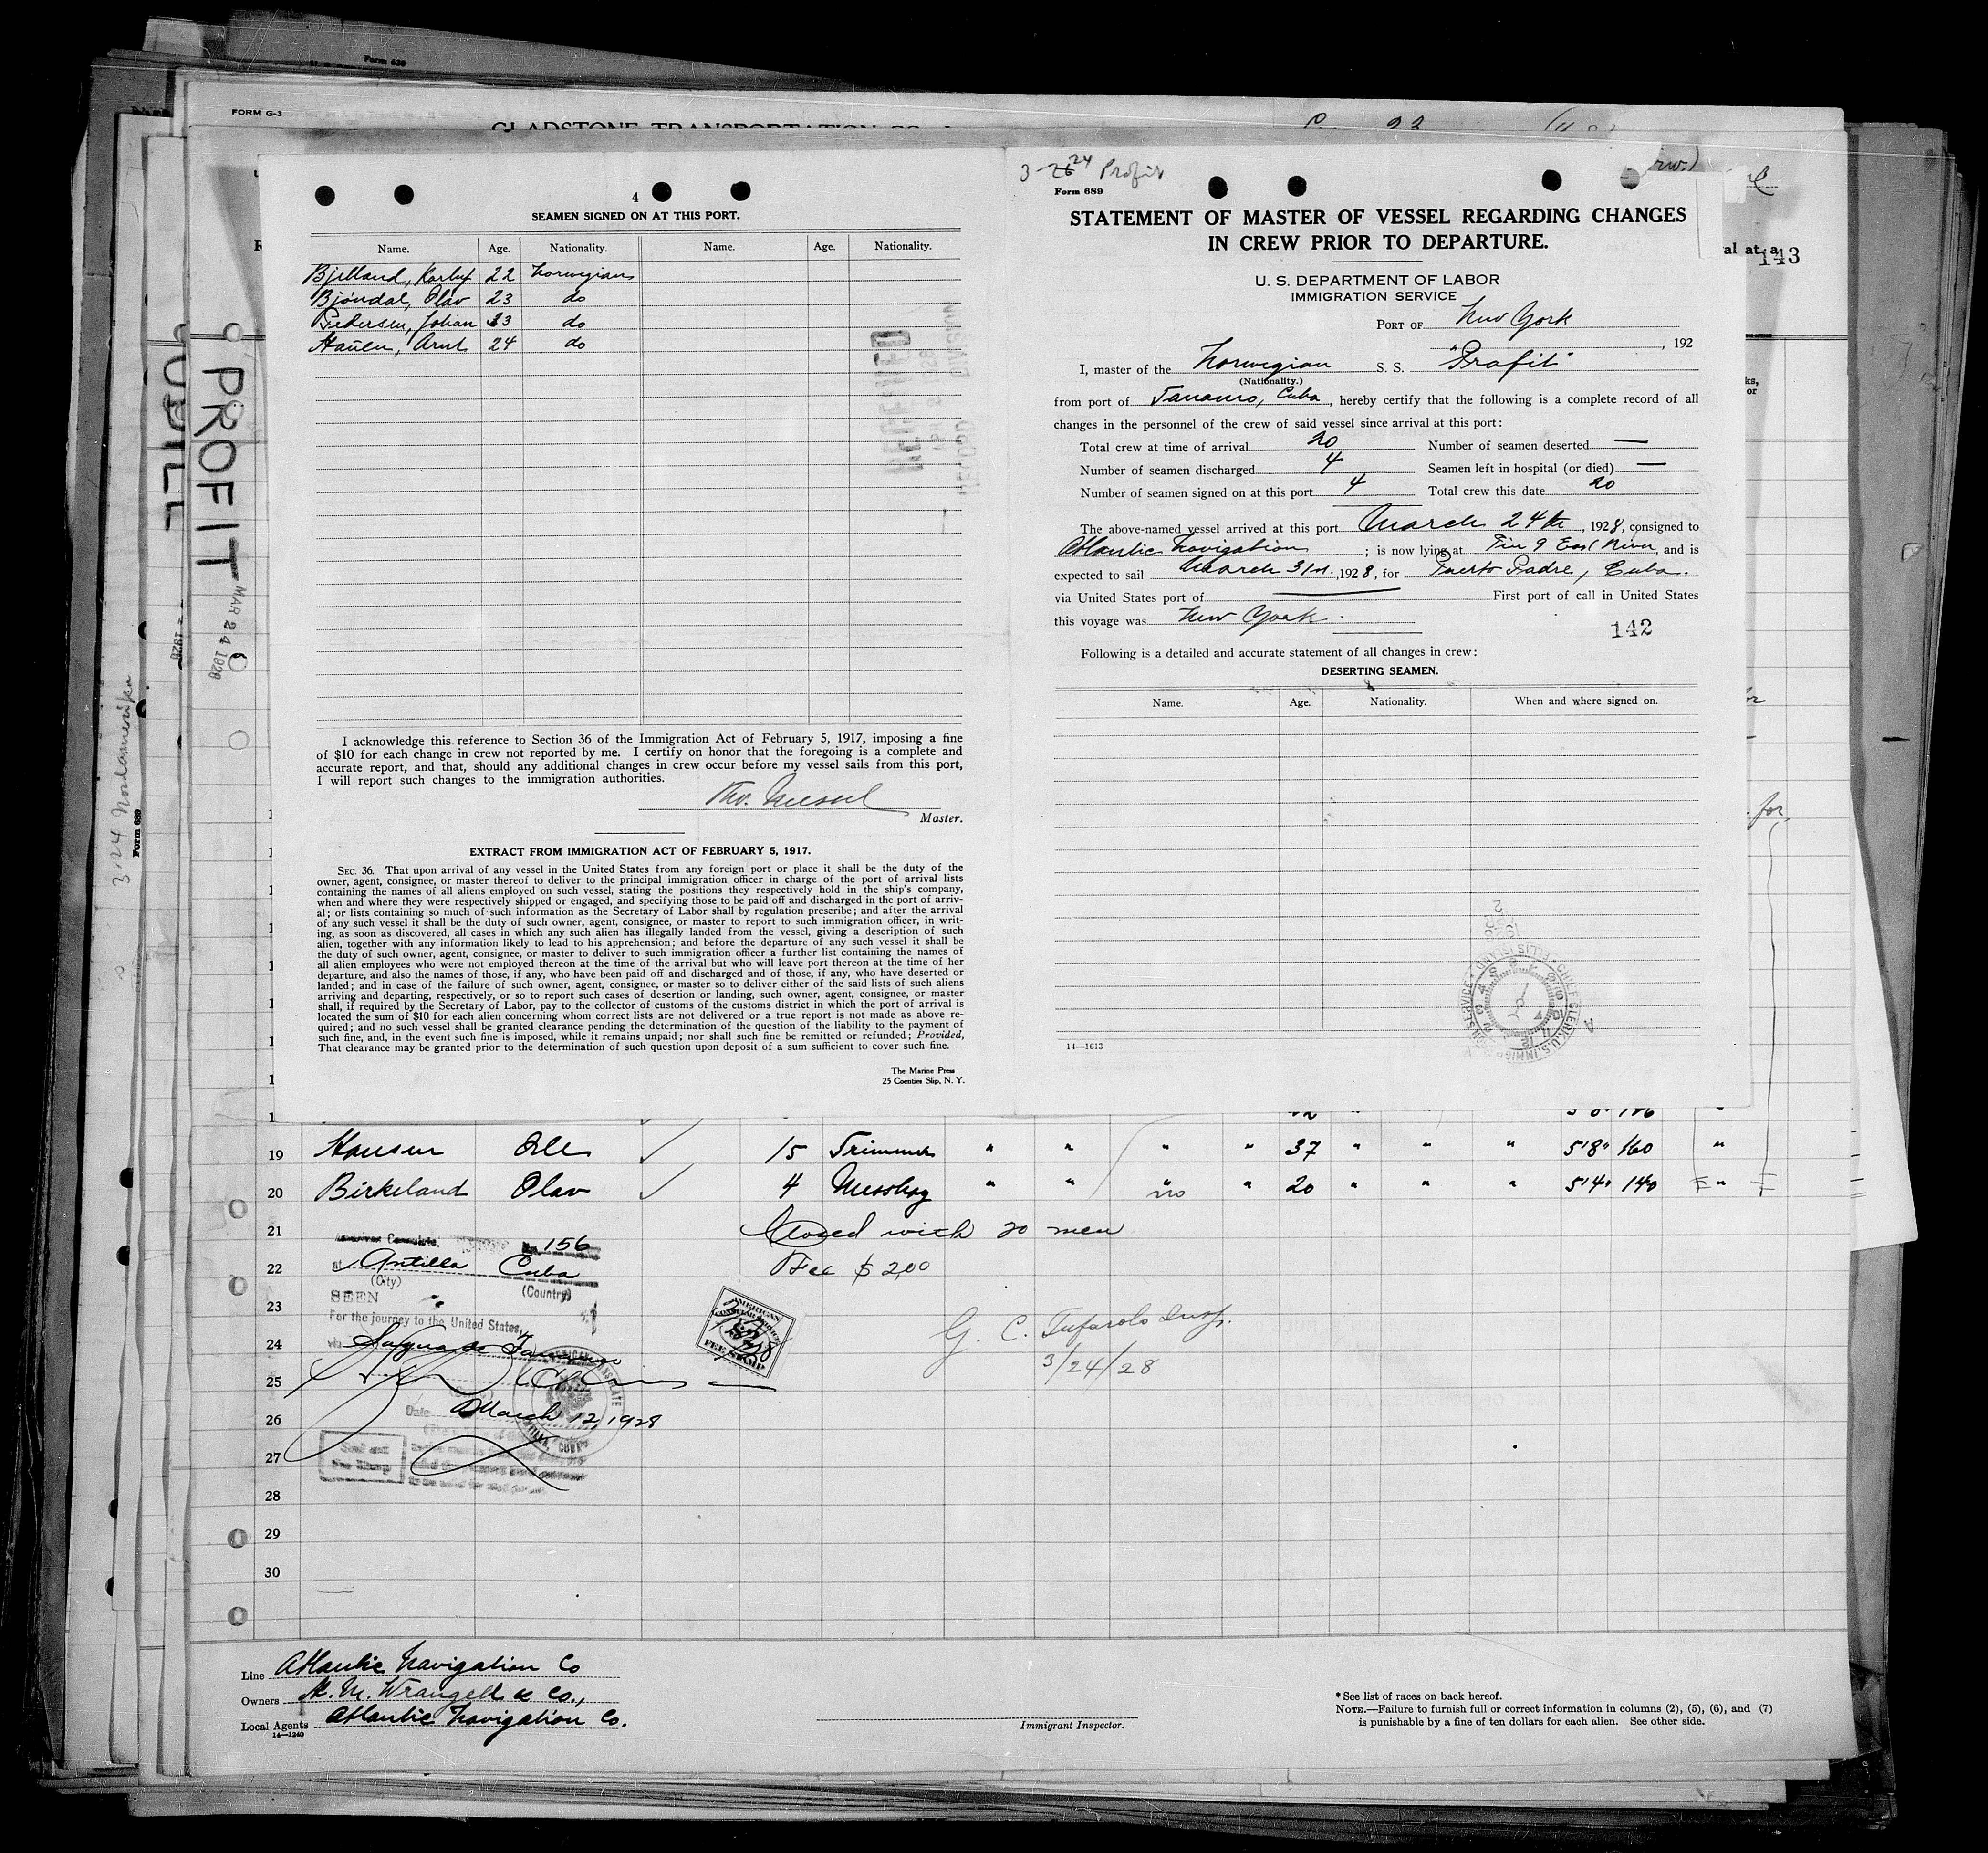 Form 638
FORM G-3
GLADSTONE TRANSPORTATION CO.
143
al at a
ks,
or
for
PROFIT
MAR 24 1928
3-24 Nordamerika
Form 689
4
SEAMEN SIGNED ON AT THIS PORT.
Name. Age. Nationality. Name. Age. Nationality.
Bjelland, Karluf 22 Norwegian
Bjöndal, Olav 23 do
Pedersen, Johan 23 do
Hauen, Arnt 24 do
I acknowledge this reference to Section 36 of the Immigration Act of February 5, 1917, imposing a fine
of $10 for each change in crew not reported by me. I certify on honor that the foregoing is a complete and
accurate report, and that, should any additional changes in crew occur before my vessel sails from this port,
I will report such changes to the immigration authorities.
Master.
EXTRACT FROM IMMIGRATION ACT OF FEBRUARY 5, 1917.
SEC. 36. That upon arrival of any vessel in the United States from any foreign port or place it shall be the duty of the
owner, agent, consignee, or master thereof to deliver to the principal immigration officer in charge of the port of arrival lists
containing the names of all aliens employed on such vessel, stating the positions they respectively hold in the ship's company,
when and where they were respectively shipped or engaged, and specifying those to be paid off and discharged in the port of arriv-
al; or lists containing so much of such information as the Secretary of Labor shall by regulation prescribe; and after the arrival
of any such vessel it shall be the duty of such owner, agent, consignee, or master to report to such immigration officer, in writ-
ing, as soon as discovered, all cases in which any such alien has illegally landed from the vessel, giving a description of such
alien, together with any information likely to lead to his apprehension; and before the departure of any such vessel it shall be
the duty of such owner, agent, consignee, or master to deliver to such immigration officer a further list containing the names of
all alien employees who were not employed thereon at the time of the arrival but who will leave port thereon at the time of her
departure, and also the names of those, if any, who have been paid off and discharged and of those, if any, who have deserted or
landed; and in case of the failure of such owner, agent, consignee, or master so to deliver either of the said lists of such aliens
arriving and departing, respectively, or so to report such cases of desertion or landing, such owner, agent, consignee, or master
shall, if required by the Secretary of Labor, pay to the collector of customs of the customs district in which the port of arrival is
located the sum of $10 for each alien concerning whom correct lists are not delivered or a true report is not made as above re-
quired; and no such vessel shall be granted clearance pending the determination of the question of the liability to the payment of
such fine, and, in the event such fine is imposed, while it remains unpaid; nor shall such fine be remitted or refunded; Provided,
That clearance may be granted prior to the determination of such question upon deposit of a sum sufficient to cover such fine.
The Marine Press
25 Coenties Slip, N. Y.
3-26 24 Profit
Form 689
STATEMENT OF MASTER OF VESSEL REGARDING CHANGES
IN CREW PRIOR TO DEPARTURE.
U. S. DEPARTMENT OF LABOR
IMMIGRATION SERVICE
PORT OF New York
, 192
I, master of the Norwegian S. S. "Profit"
(Nationality.)
from port of Tanamo, Cuba, hereby certify that the following is a complete record of all
changes in the personnel of the crew of said vessel since arrival at this port:
Total crew at time of arrival 20 Number of seamen deserted —
Number of seamen discharged 4 Seamen left in hospital (or died) —
Number of seamen signed on at this port 4 Total crew this date 20
The above-named vessel arrived at this port March 24th, 1928, consigned to
Atlantic Navigation; is now lying at Pier 9 East River, and is
expected to sail March 31st, 1928, for Puerto Padre, Cuba.
via United States port of — First port of call in United States
this voyage was New York.
142
Following is a detailed and accurate statement of all changes in crew:
DESERTING SEAMEN.
Name. Age. Nationality. When and where signed on.
14—1613
19 Hansen Ole 15 Trimmer " " " " 37 " " " 5'8" 160 "
20 Birkeland Olav 4 Messboy " " no " 20 " " " 5'4" 140 "
21 Closed with 20 men
American Consulate. No. 156
22 at Antilla Cuba Fee $2.00
(City) (Country)
SEEN
23 For the journey to the United States,
AMERICAN CONSULAR SERVICE
FEE STAMP
G. C. Tufarolo Insp.
24 via Sagua de Tanamo
3/24/28
25
26 Date March 12, 1928
27
28
29
30
Line Atlantic Navigation Co
Owners M. Wrangell & Co.,
Local Agents Atlantic Navigation Co.
14—1240
Immigrant Inspector.
*See list of races on back hereof.
NOTE.—Failure to furnish full or correct information in columns (2), (5), (6), and (7)
is punishable by a fine of ten dollars for each alien. See other side.